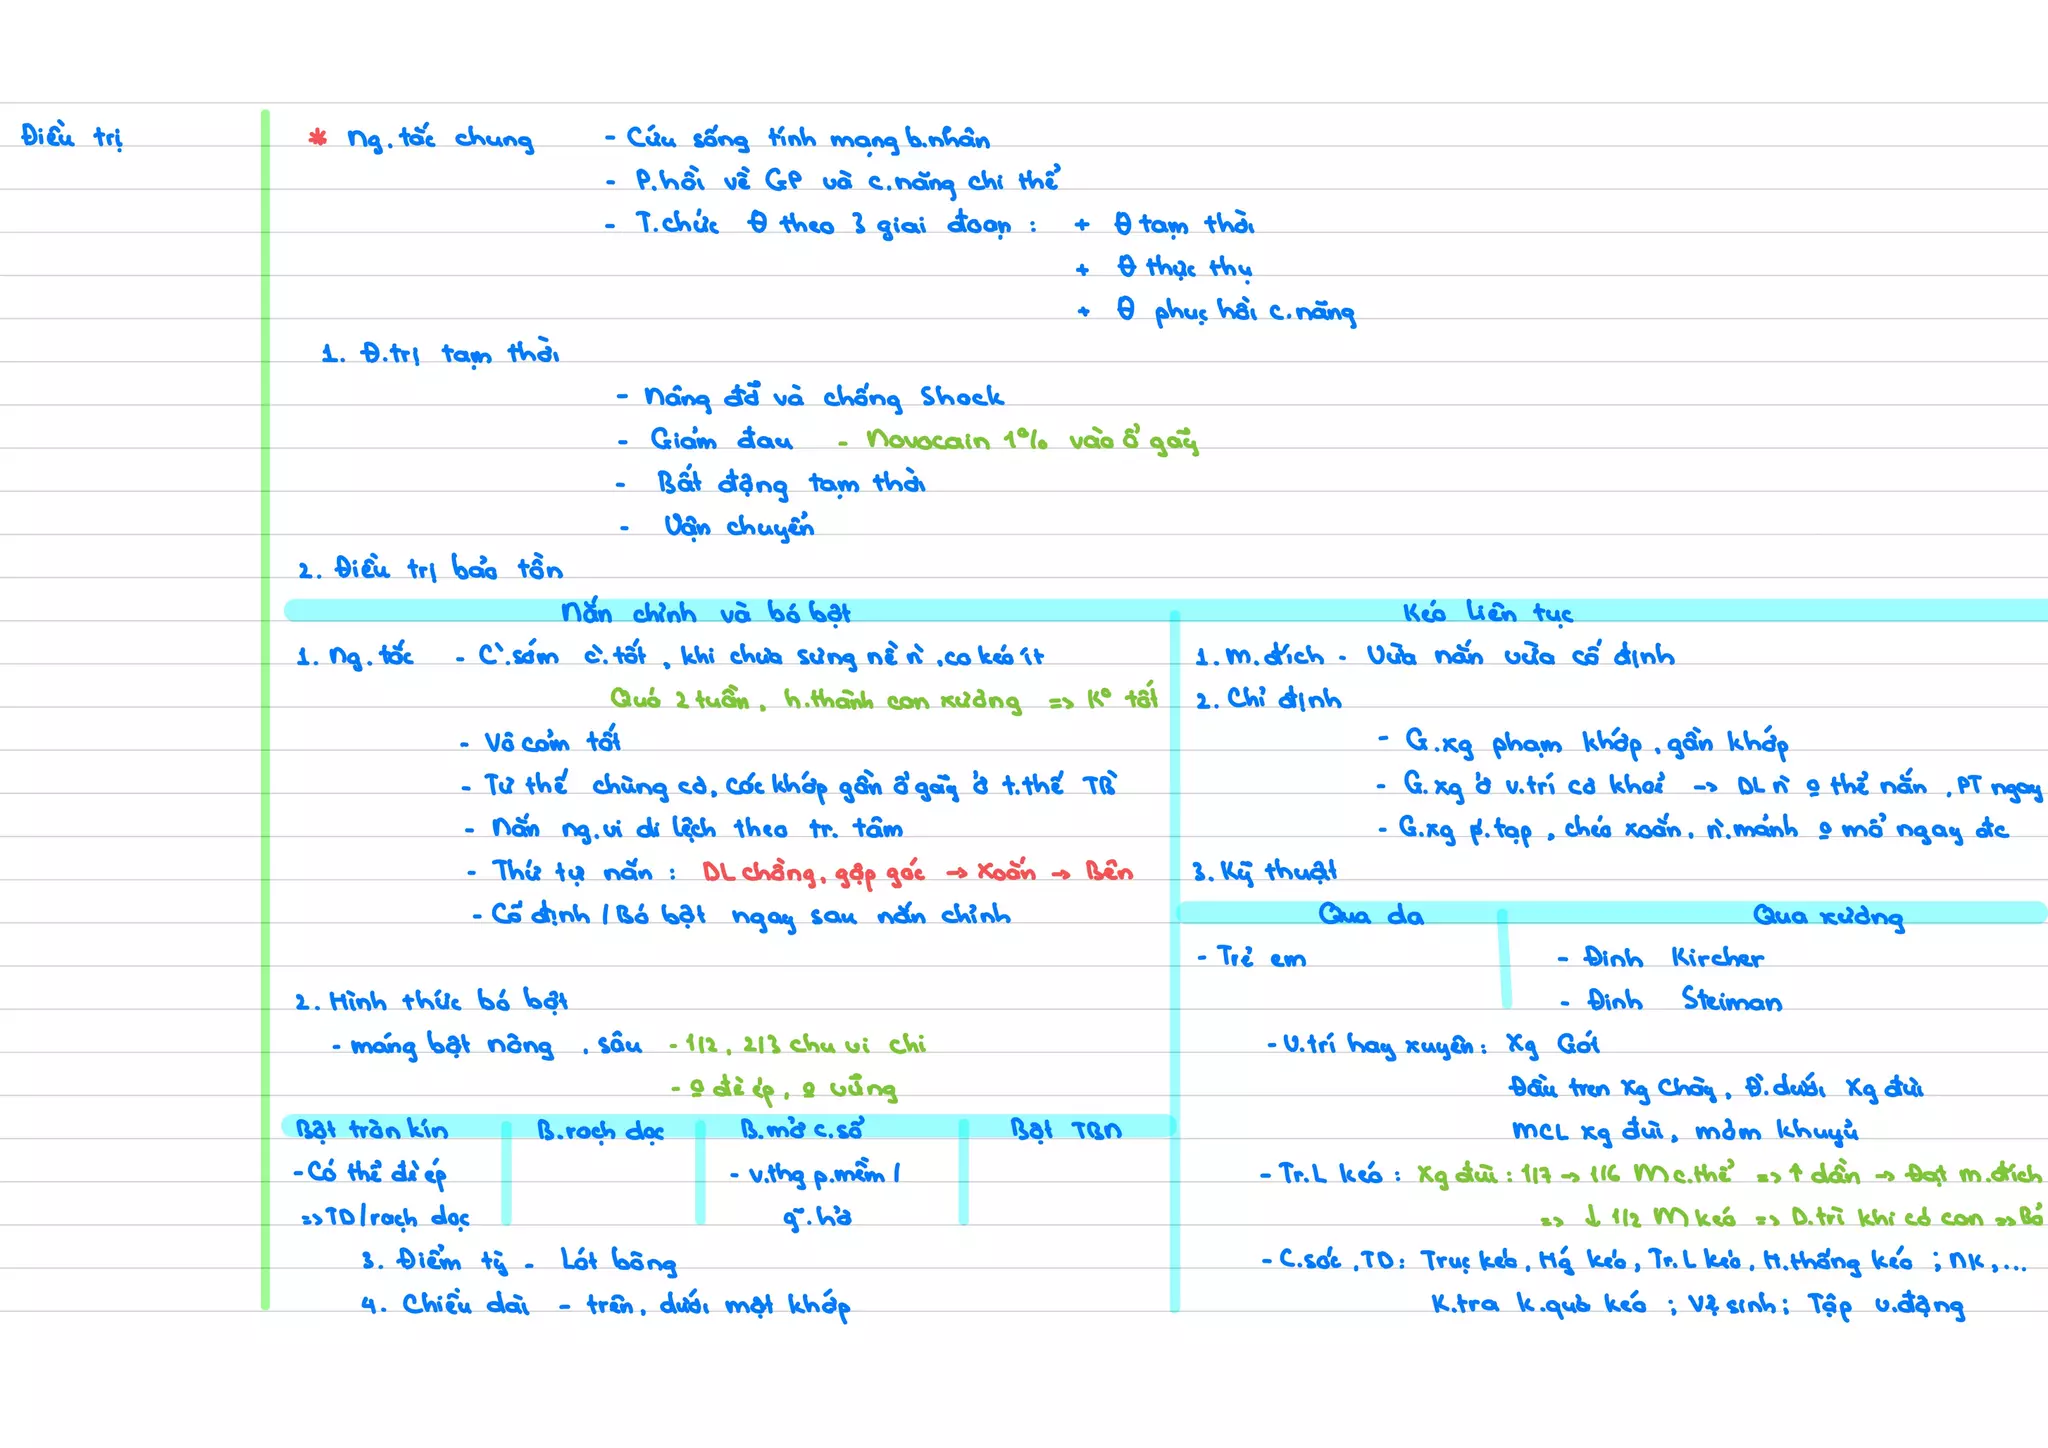 Điều trị
* Ng. tắc chung - Cứu sống tính mạng b.nhân
- P.hồi về GP và c.năng chi thể
- T.chức Θ theo 3 giai đoạn : + Θ tạm thời
+ Θ thực thụ
+ Θ phục hồi c.năng
1. Đ.trị tạm thời
- Nâng đỡ và chống Shock
- Giảm đau - Novocain 1% vào ổ gãy
- Bất động tạm thời
- Vận chuyển
2. Điều trị bảo tồn
Nắn chỉnh và bó bột
1. Ng. tắc - C`.sớm c`.tốt, khi chưa sưng nề n`, co kéo ít
Quá 2 tuần, h.thành can xương => K° tốt
- Vô cảm tốt
- Tư thế chùng cơ, các khớp gần ổ gãy ở t.thế TB
- Nắn ng.vi di lệch theo tr. tâm
- Thứ tự nắn : DL chồng, gập góc → Xoắn → Bên
- Cố định / Bó bột ngay sau nắn chỉnh
2. Hình thức bó bột
- máng bột nông, sâu - 1/2, 2/3 chu vi chi
- o đè ép, o vững
Bột tròn kín
B.rạch dọc
B.mở c.sổ
Bột TBN
- Có thể đè ép
=> TD/rạch dọc
- v.thg p.mềm /
g~.hở
3. Điểm tỳ - Lót bông
4. Chiều dài - trên, dưới một khớp
Kéo liên tục
1. M.đích - Vừa nắn vừa cố định
2. Chỉ định
- G.xg phạm khớp, gần khớp
- G.xg ở v.trí cơ khoẻ -> DL n` o thể nắn, PT ngay
- G.xg p.tạp, chéo xoắn, n`.mảnh o mổ ngay đc
3. Kỹ thuật
Qua da
Qua xương
- Trẻ em
- Đinh Kircher
- Đinh Steiman
- V.trí hay xuyên : Xg Gót
Đầu trên Xg Chày, Đ`.dưới Xg đùi
MCL xg đùi, mỏm khuỷu
- Tr.L kéo : Xg đùi : 1/7 -> 1/6 M c.thể => ↑ dần -> Đạt m.đích
=> ↓ 1/2 M kéo => D.trì khi có can => Bó
- C.sóc, TD : Trục kéo, Hg kéo, Tr.L kéo, H.thống kéo ; NK,...
K.tra k.quả kéo ; Vệ sinh ; Tập v.động